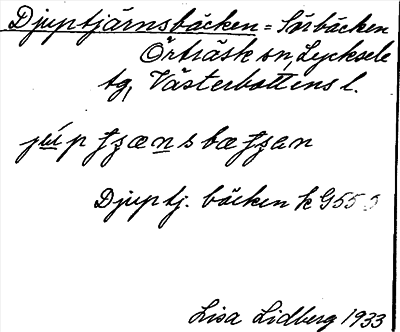 Djuptjärnsbäcken = Sörbäcken
Örträsk sn, Lycksele
tg, Västerbottens l.
Djuptj. bäcken k G55
Lisa Lidberg 1933